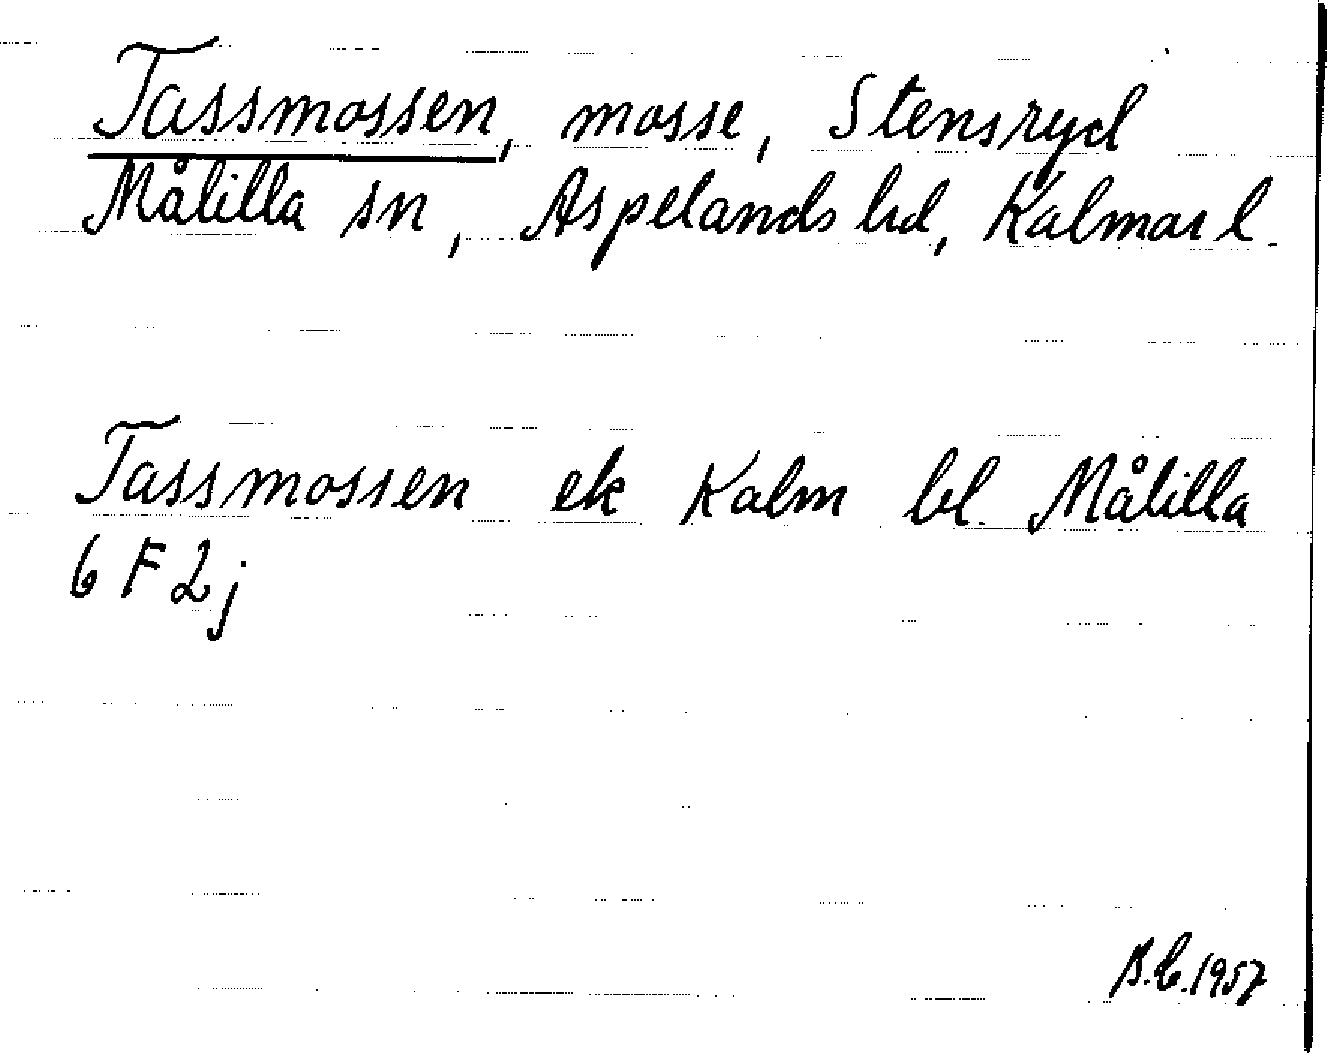 Tassmossen, mosse, Stensryd
Målilla sn, Aspelands hd, Kalmar l.
Tassmossen ek Kalm bl. Målilla
6 F 2j
B.C. 1957